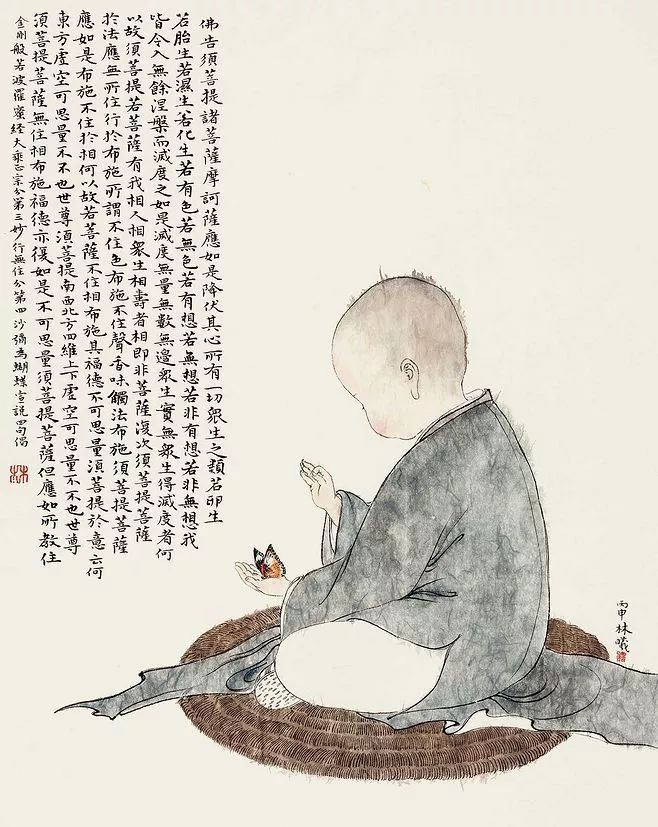 佛告須菩提諸菩薩摩訶薩應如是降伏其心所有一切眾生之類若卵生
若胎生若濕生若化生若有色若無色若有想若無想若非有想若非無想我
皆令入無餘涅槃而滅度之如是滅度無量無數無邊眾生實無眾生得滅度者何
以故須菩提若菩薩有我相人相眾生相壽者相即非菩薩復次須菩提菩薩
於法應無所住行於布施所謂不住色布施不住聲香味觸法布施須菩提菩薩
應如是布施不住於相何以故若菩薩不住相布施其福德不可思量須菩提於意云何
東方虛空可思量不不也世尊須菩提南西北方四維上下虛空可思量不不也世尊
須菩提菩薩無住相布施福德亦復如是不可思量須菩提菩薩但應如所教住
金剛般若波羅蜜經大乘正宗分第三妙行無住分第四沙彌為蝴蝶宣説偈
丙申林曦